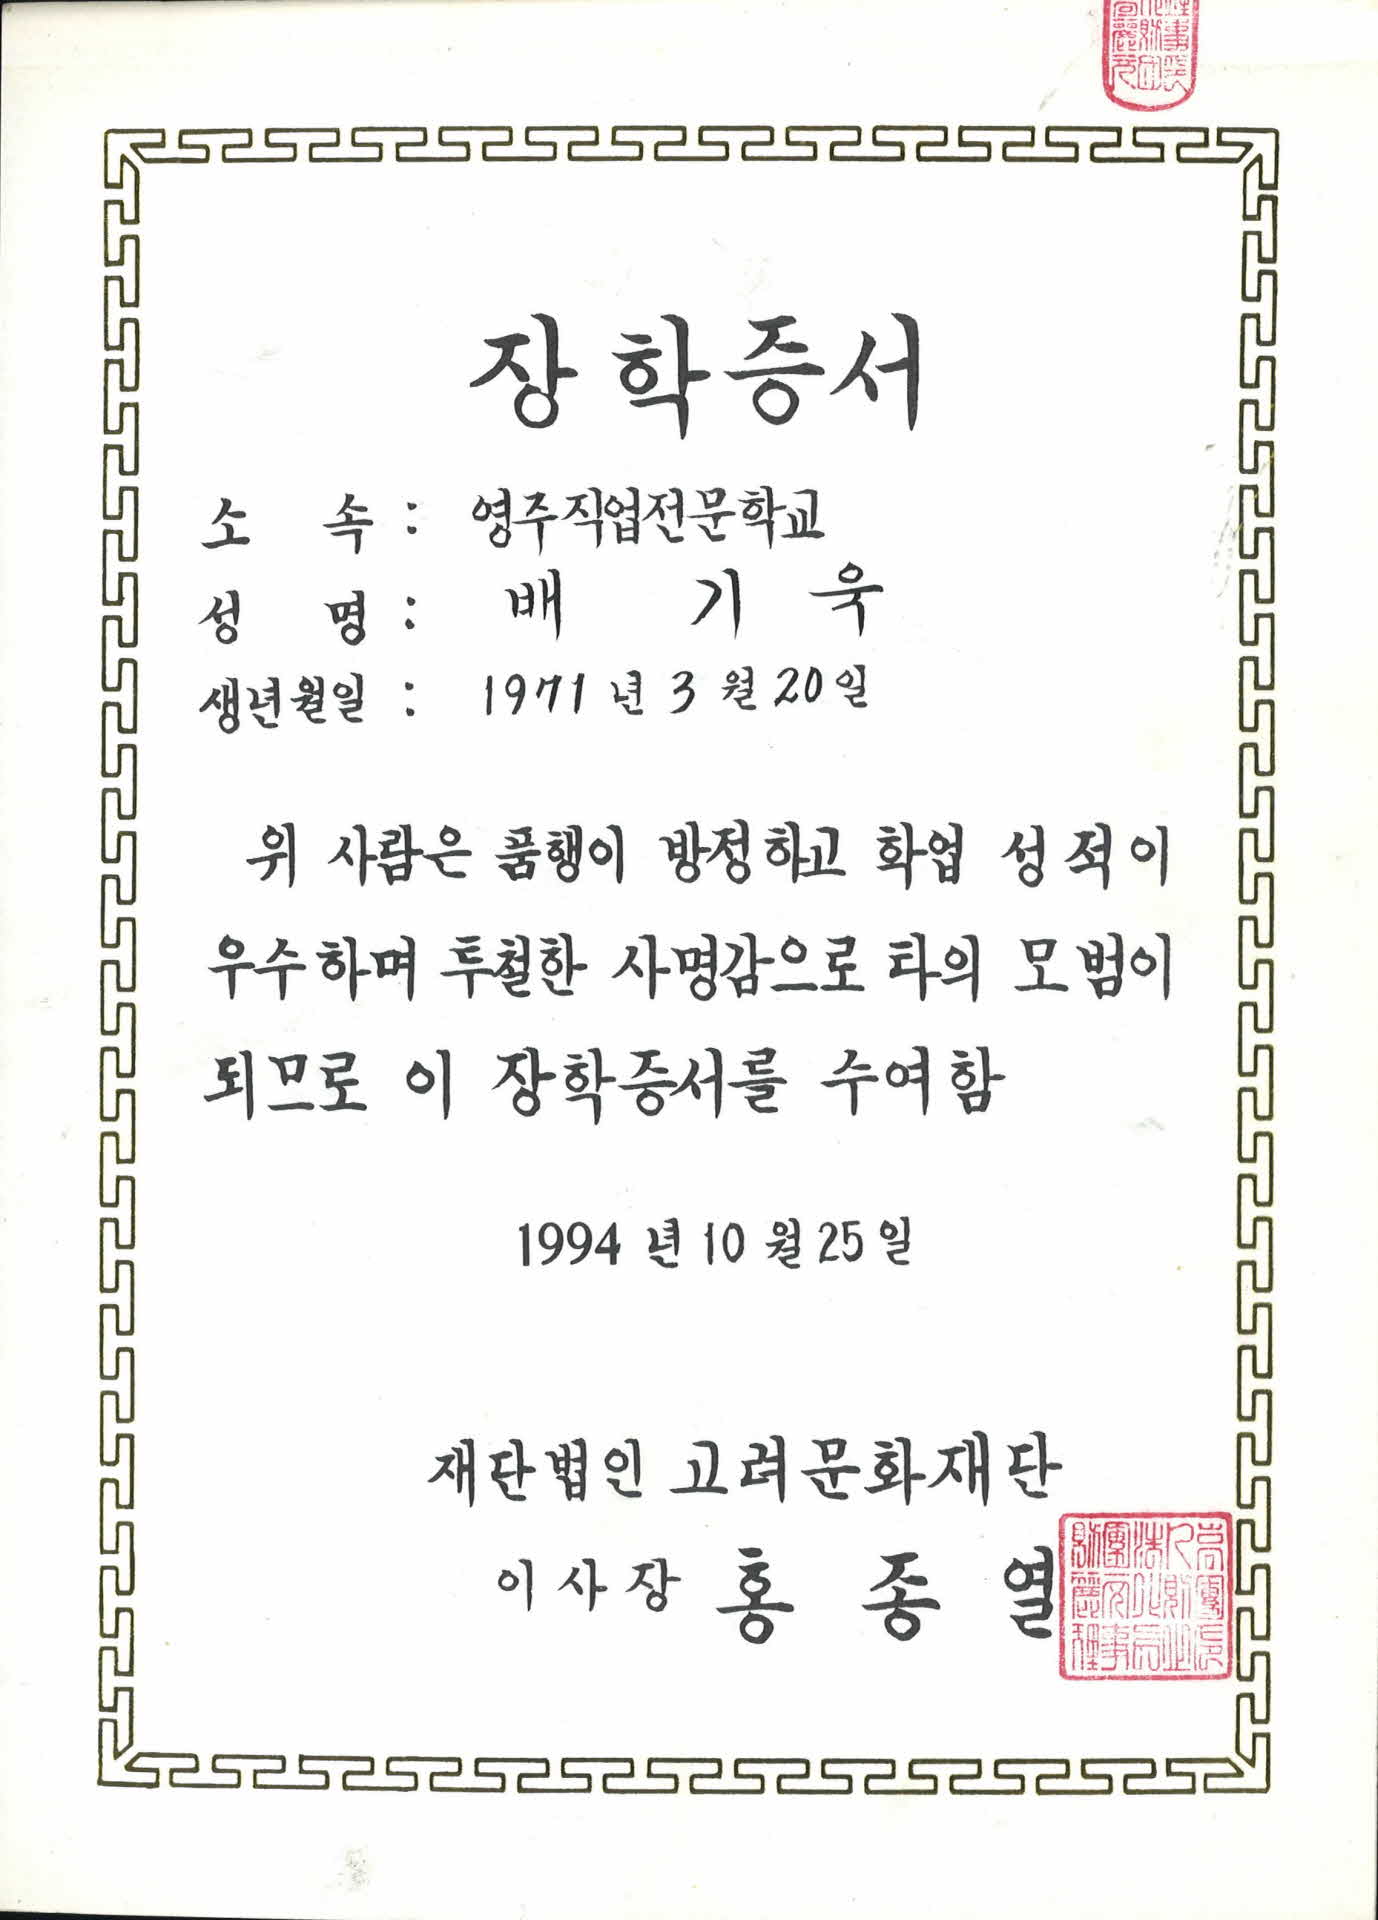 장학증서
소 속 : 영주직업전문학교
성 명 : 배 기 욱
생년월일 : 1971년 3월 20일
위 사람은 품행이 방정하고 학업 성적이
우수하며 투철한 사명감으로 타의 모범이
되므로 이 장학증서를 수여함
1994년 10월 25일
재단법인 고려문화재단
이사장 홍 종 열